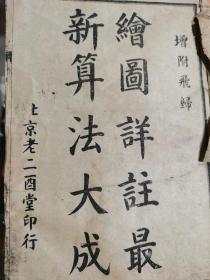 增附飛歸
繪圖詳註最
新算法大成
上京老二酉堂印行